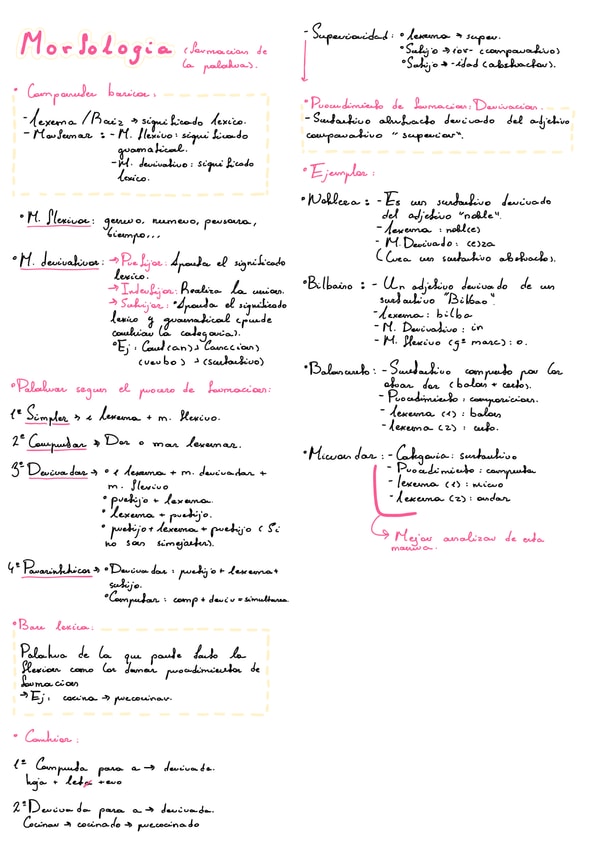 Morfologia (formacion de
la palabra).
• Componentes basicos:
- Lexema / Raiz → significado lexico.
- Morfemas: - M. flexivo: significado
gramatical.
- M. derivativo: significado
lexico.
• M. flexivos: genero, numero, persona,
tiempo...
• M. derivativos: → Prefijos: Aporta el significado
lexico.
→ Interfijos: Realiza la union.
→ Sufijos: • Aporta el significado
lexico y gramatical (puede
cambiar la categoria).
• Ej: Cant(an) → Cancion
(verbo) → (sustantivo)
• Palabras segun el proceso de formacion:
1º Simples → 1 lexema + m. flexivo.
2º Compuestas → Dos o mas lexemas.
3º Derivadas → • 1 lexema + m. derivados +
m. flexivo
• prefijo + lexema.
• lexema + prefijo.
• prefijo + lexema + prefijo (Si
no son simejantes).
4º Parasinteticos → • Derivadas: prefijo + lexema +
sufijo.
• Compuestas: comp + deriv = simultanea
• Base lexica:
Palabra de la que parte tanto la
flexion como los demas procedimientos de
formacion
→ Ej: cocina → precocinar.
• Cambios:
1º Compuesta pasa a → derivada.
hoja + lata + ero
2º Derivada pasa a → derivada.
Cocinar → cocinado → precocinado
- Superioridad: • lexema → super.
• Sufijo → ior- (comparativo)
• Sufijo → -idad (abstractos).
• Procedimiento de formacion: Derivacion.
- Sustantivo abstracto derivado del adjetivo
comparativo "superior".
• Ejemplos:
• Nobleza: - Es un sustantivo derivado
del adjetivo "noble".
- lexema: nobl(e)
- M. Derivado: (e)za
(Crea un sustantivo abstracto).
• Bilbaino: - Un adjetivo derivado de un
sustantivo "Bilbao".
- lexema: bilba
- M. Derivativo: in
- M. flexivo (gº masc): o.
• Baloncesto: - Sustantivo compuesto por los
otros dos (balon + cesto).
- Procedimiento: composicion.
- lexema (1): balon
- lexema (2): cesto.
• Microondas: - Categoria: sustantivo
- Procedimiento: compuesta
- lexema (1): micro
- lexema (2): ondas
→ Mejor analizar de esta
manera.